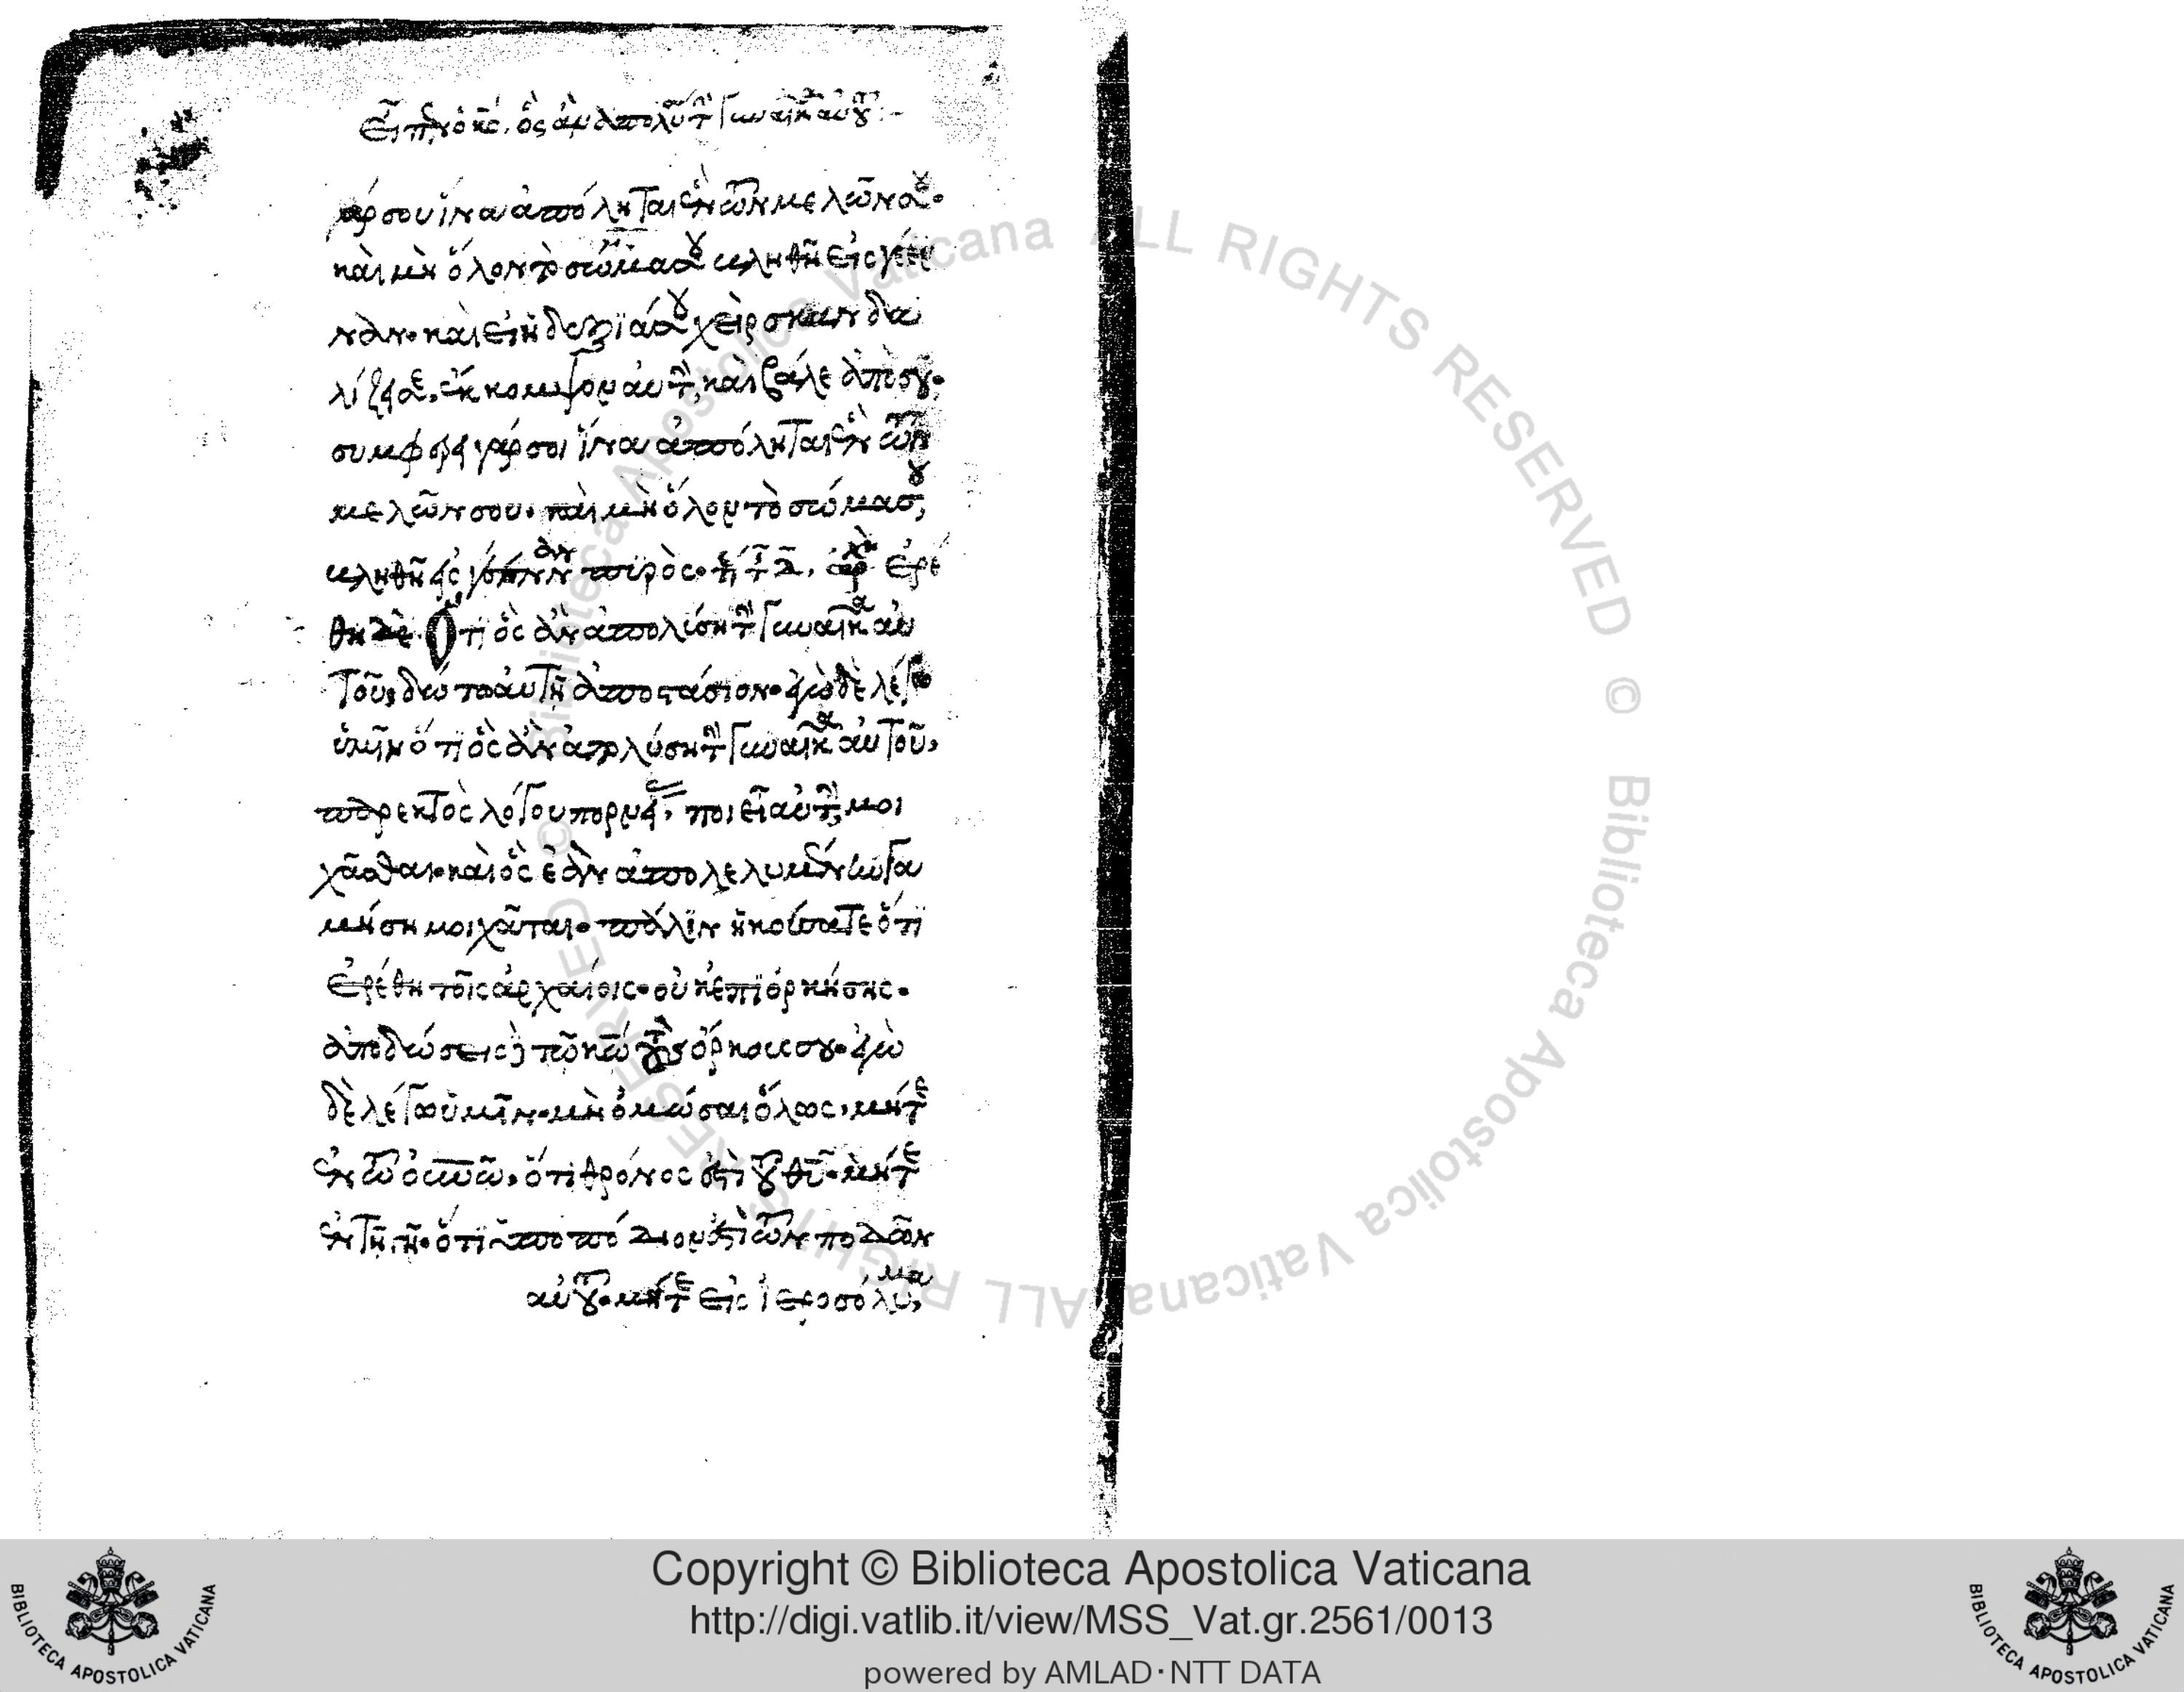 Εἶπεν ὁ κς, ὃς ἂν ἀπολύσῃ τὴν γυναῖκα αὐτοῦ:-
γάρ σου ἵνα ἀπόληται ἓν τῶν μελῶν σου.
καὶ μὴ ὅλον τὸ σῶμα σου βληθῆ εἰς γέεν
ναν. καὶ εἰ ἡ δεξϊά σου χεὶρ σκανδα
λίζει σε, ἔκκοψον αὐτὴν, καὶ βάλε ἀπὸ σοῦ.
συμφέρει γάρ σοι ἵνα ἀπόληται ἓν τῶν
μελῶν σου. καὶ μὴ ὅλον τὸ σῶμα σου,
βληθῆ εἰς γέενναν πυρός. ἐρρέ
θη δὲ Ὅτι ὃς ἂν ἀπολύση τὴν γυναῖκα αὐ
τοῦ, δώτω αὐτῆ ἀποστάσιον. ἐγὼ δὲ λέγω
ὑμῖν ὅτι ὃς ἂν ἀπολύση τὴν γυναῖκα αὐτοῦ,
παρεκτὸς λόγου πορνείας, ποιεῖ αὐτὴν μοι
χᾶσθαι. καὶ ὃς ἐὰν ἀπολελυμένην γα
μήση μοιχᾶται. πάλϊν ἠκούσατε ὅτι
ἐρέθη τοῖς ἀρχαίοις. οὐκ ἐπϊορκήσης.
ἀποδώσεις δὲ τῷ κῶ τοὺς ὅρκους σου. ἐγὼ
δὲ λέγω ὑμῖν. μὴ ὀμώσαι ὅλως, μήτε
ἐν τῶ οὐνῶ, ὅτι θρόνος ἐστὶ τοῦ θῦ. μήτε
ἐν τῆ γῆ. ὅτι ὑποπόδιον ἐστὶ τῶν ποδῶν
αὐτοῦ. μήτε εἰς ἱεροσόλυμα,
Copyright © Biblioteca Apostolica Vaticana
http://digi.vatlib.it/view/MSS_Vat.gr.2561/0013
powered by AMLAD·NTT DATA
BIBLIOTECA APOSTOLICA VATICANA
BIBLIOTECA APOSTOLICA VATICANA
© Biblioteca Apostolica Vaticana ALL RIGHTS RESERVED © Biblioteca Apostolica Vaticana ALL RIGHTS RESERVED